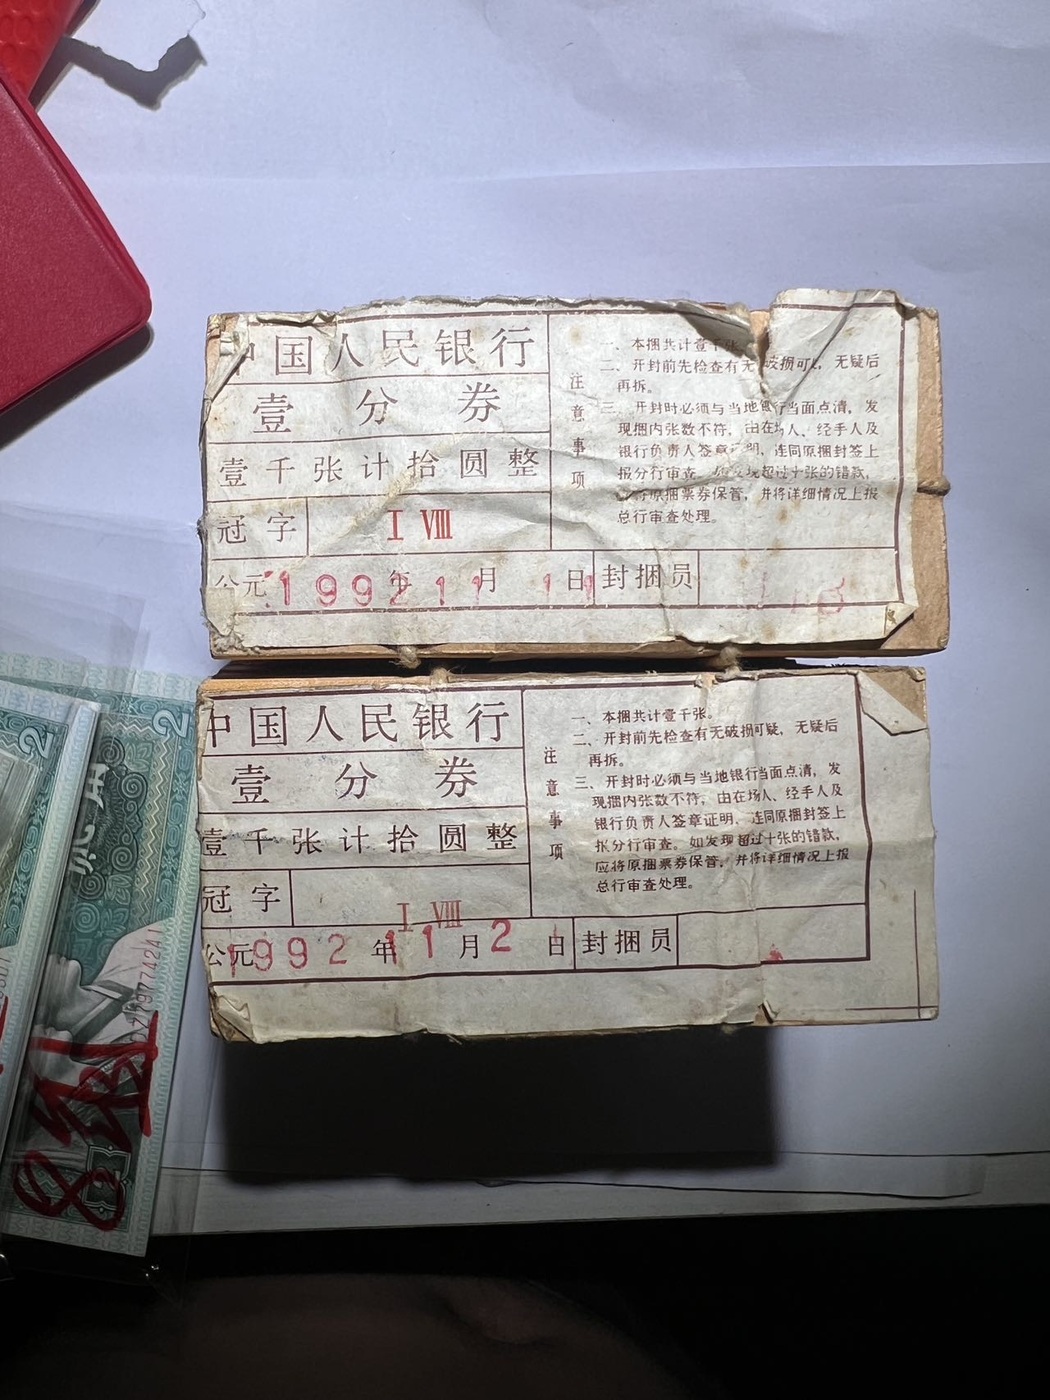 中国人民银行
壹分券
壹千张计拾圆整
冠字 I VIII
公元1992年11月11日 封捆员
注意事项
一、本捆共计壹千张
二、开封前先检查有无破损可疑，无疑后
再拆。
三、开封时必须与当地银行当面点清，发
现捆内张数不符，由在场人、经手人及
银行负责人签章证明，连同原捆封签上
报分行审查。如发现超过十张的错款，
应将原捆票券保管，并将详细情况上报
总行审查处理。
中国人民银行
壹分券
壹千张计拾圆整
冠字
I VIII
公元1992年11月2日 封捆员
注意事项
一、本捆共计壹千张。
二、开封前先检查有无破损可疑，无疑后
再拆。
三、开封时必须与当地银行当面点清，发
现捆内张数不符，由在场人、经手人及
银行负责人签章证明，连同原捆封签上
报分行审查。如发现超过十张的错款，
应将原捆票券保管，并将详细情况上报
总行审查处理。
2
2